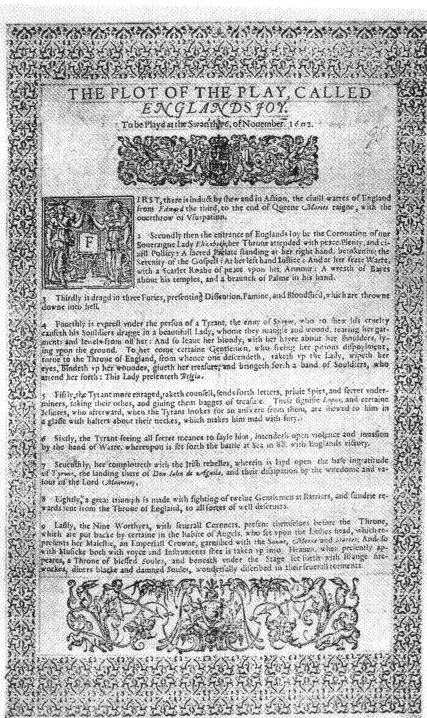 THE PLOT OF THE PLAY, CALLED
ENGLANDS IOY.
To be Playd at the Swan this 6. of Nouember. 1602.
FIRST, there is induct by shew and in Action, the ciuill warres of England
from Edward the third, to the end of Queene Maries raigne, with the
ouerthrow of Vsurpation.
2 Secondly then the entrance of Englands Ioy by the Coronation of our
Soueraigne Lady Elizabeth; her Throne attended with peace, Plenty, and ci-
uill Pollicy: A sacred Prelate standing at her right hand, betokening the
Serenity of the Gospell: At her left hand Iustice: And at her feete Warre,
with a Scarlet Roabe of peace vpon his Armour: A wreath of Bayes
about his temples, and a braunch of Palme in his hand.
3 Thirdly is dragd in three Furies, presenting Dissention, Famine, and Bloudshed, which are throwne
downe into hell.
4 Fourthly is exprest vnder the person of a Tyrant, the enuy of Spayne, who to shew his cruelty
causeth his Souldiers dragge in a beautifull Lady, whome they mangle and wound, tearing her gar-
ments and Iewels from off her: And so leaue her bloudy, with her hayre about her shoulders, ly-
ing vpon the ground. To her come certaine Gentlemen, who seeing her pitious dispoylment,
turne to the Throne of England, from whence one descendeth, taketh vp the Lady, wipeth her
eyes, bindeth vp her woundes, giueth her treasure, and bringeth forth a band of Souldiers, who
attend her forth: This Lady presenteth Belgia.
5 Fiftly, the Tyrant more enraged, taketh counsell, sends forth letters, priuie Spies, and secret vnder-
miners, taking their othes, and giuing them bagges of treasure. These signifie Lopus, and certaine
Iesuites, who afterward, when the Tyrant lookes for an answere from them, are shewed to him in
a glasse with halters about their neckes, which makes him mad with fury.
6 Sixtly, the Tyrant seeing all secret meanes to fayle him, intendeth open violence and inuasion
by the hand of Warre, whereupon is set forth the battle at Sea in 88. with Englands victory.
7 Seuenthly, hee complotteth with the Irish rebelles, wherein is layd open the base ingratitude
of Tyrone, the landing there of Don Iohn de Aguila, and their dissipation by the wisedome and va-
lour of the Lord Mountioy.
8 Eightly, a great triumph is made with fighting of twelue Gentlemen at Barriers, and sundrie re-
wards sent from the Throne of England, to all sortes of well deseruers.
9 Lastly, the Nine Worthyes, with seuerall Coronets, present themselues before the Throne,
which are put backe by certaine in the habite of Angels, who set vpon the Ladies head, which re-
presents her Maiestie, an Imperiall Crowne, garnished with the Sunne, Moone and Starres; And so
with Musicke both with voyce and Instruments shee is taken vp into Heauen, when presently ap-
peares, a Throne of blessed Soules, and beneath vnder the Stage set forth with strange fire-
workes, diuers blacke and damned Soules, wonderfully discribed in their seuerall torments.